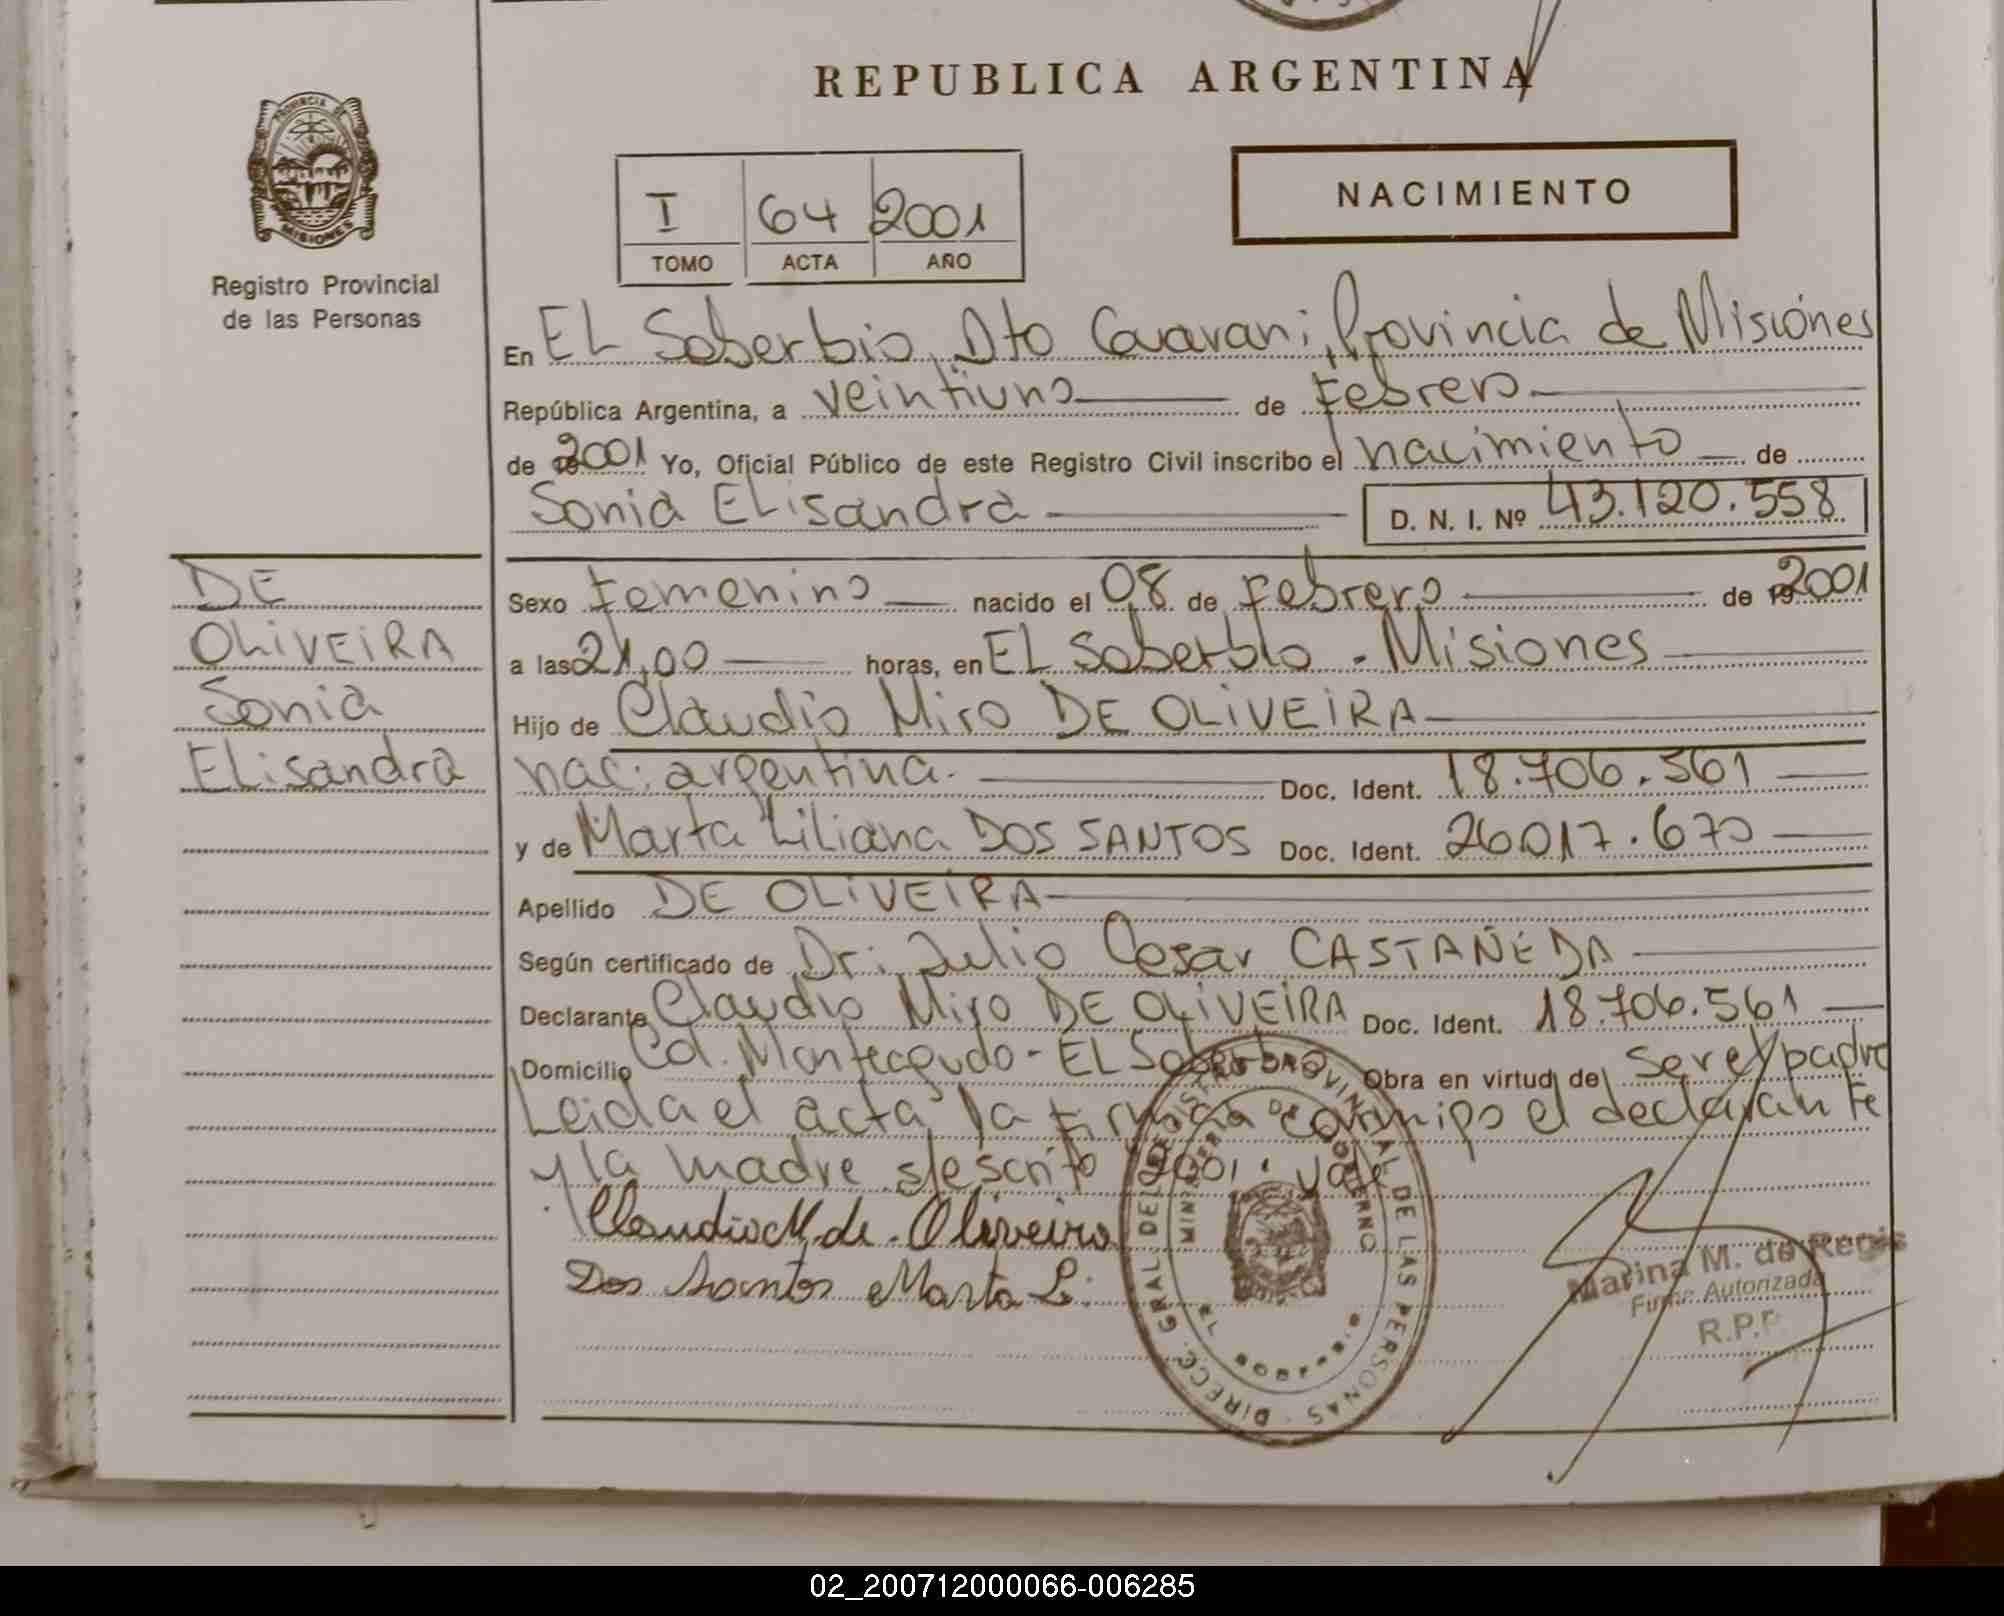 REPUBLICA ARGENTINA
PROVINCIA DE
MISIONES
Registro Provincial
de las Personas
NACIMIENTO
I 64 2001
TOMO ACTA AÑO
En EL Soberbio, Dto Guarani, Provincia de Misiones
República Argentina, a veintiuno de febrero
de 2001 Yo, Oficial Público de este Registro Civil inscribo el nacimiento de
Sonia ELisandra D. N. I. Nº 43.120.558
DE
OLiVEiRA
Sonia
ELisandra
Sexo femenino nacido el 08 de febrero de 192001
a las 21,00 horas, en EL Soberbio - Misiones
Hijo de Claudio Miro DE OLiVEiRA
nac: argentina. Doc. Ident. 18.706.561
y de Marta Liliana DOS SANTOS Doc. Ident. 26017.670
Apellido DE OLiVEiRA
Según certificado de Dr: Julio Cesar CASTAÑEDA
Declarante Claudio Miro DE OLiVEiRA Doc. Ident. 18.706.561
Domicilio Col. Monteagudo - EL Soberbio Obra en virtud de ser el padre
Leida el acta, la firman conmigo el declarante
y la madre s/escrito 2001. vale
Claudio M. de Oliveira
Dos Santos Marta L.
DIRECC. GRAL DEL REGISTRO PROVINCIAL DE LAS PERSONAS
MINISTERIO DE GOBIERNO
EL SOBERBIO
Marina M. de Regis
Firma Autorizada
R.P.P.
02_200712000066-006285